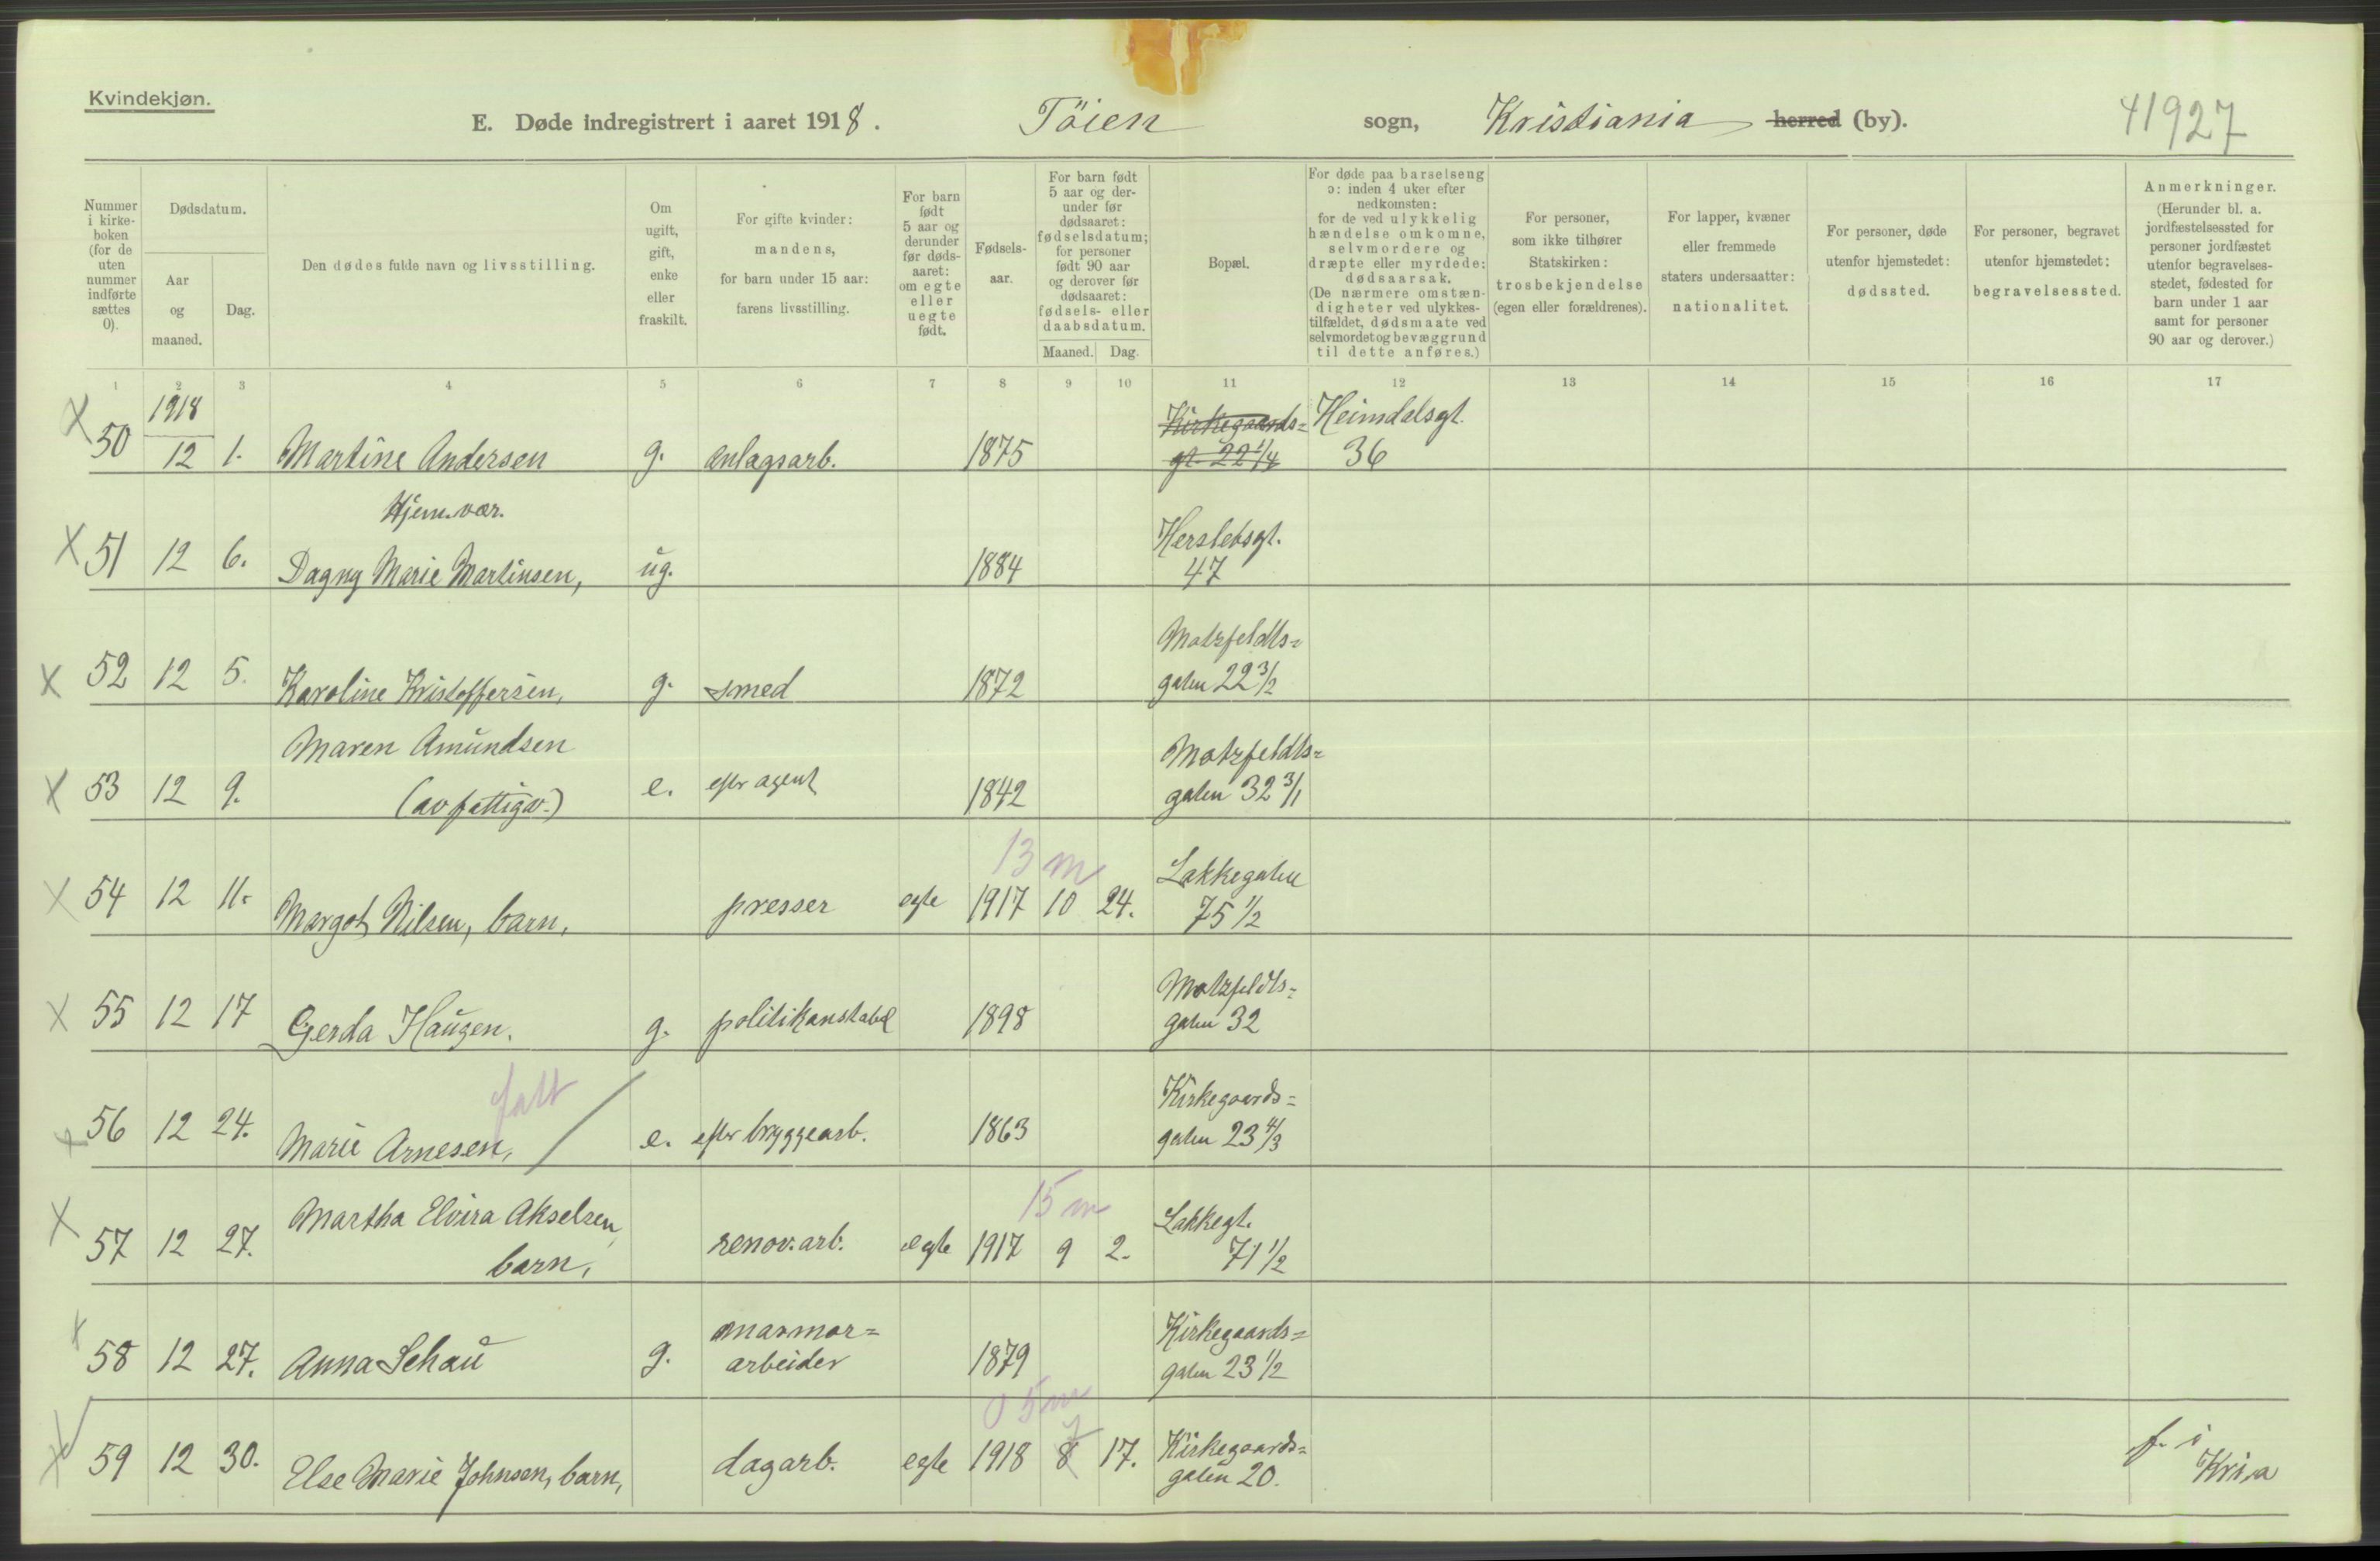 Kvindekjøn.
E. Døde indregistrert i aaret 1918. Töien sogn, Kristiania herred (by). 41927
Nummer i kirke-boken (for de uten nummer indførte sættes 0).
Dødsdatum.
Aar og maaned.
Dag.
Den dødes fulde navn og livsstilling.
Om ugift, gift, enke eller fraskilt.
For gifte kvinder: mandens, for barn under 15 aar: farens livsstilling.
For barn født 5 aar og derunder før døds-aaret: om egte eller uegte født.
Fødsels-aar.
For barn født 5 aar og der-under før dødsaaret: fødselsdatum; for personer født 90 aar og derover før dødsaaret: fødsels- eller daabsdatum.
Maaned. Dag.
Bopæl.
For døde paa barselseng ɔ: inden 4 uker efter nedkomsten: for de ved ulykkelig hændelse omkomne, selvmordere og dræpte eller myrdede: dødsaarsak. (De nærmere omstæn-digheter ved ulykkes-tilfældet, dødsmaate ved selvmordet og bevæggrund til dette anføres.)
For personer, som ikke tilhører Statskirken: trosbekjendelse (egen eller forældrenes).
For lapper, kvæner eller fremmede staters undersaatter: nationalitet.
For personer, døde utenfor hjemstedet: dødssted.
For personer, begravet utenfor hjemstedet: begravelsessted.
Anmerkninger. (Herunder bl. a. jordfæstelsessted for personer jordfæstet utenfor begravelses-stedet, fødested for barn under 1 aar samt for personer 90 aar og derover.)
1 2 3 4 5 6 7 8 9 10 11 12 13 14 15 16 17
1918 Kirkegaards= Heimdalsgt.
X 50 12 1. Martine Andersen g. anlagsarb. 1875 gt. 22 1/4 36
Hjem.vær. Herslebsgt.
X 51 12 6. Dagny Marie Martinsen, ug. 1884 47
Motzfeldts=
X 52 12 5. Karoline Kristoffersen, g. smed 1872 gaten 22 3/2
Maren Amundsen Motzfeldts=
X 53 12 9. (av fattigv.) e. efter agent 1842 gaten 32 3/1
13 m Lakkegaten
X 54 12 11. Margot Nilsen, barn, presser egte 1917 10 24. 75 1/2
Motzfeldts=
X 55 12 17 Gerda Haugen. g. politikonstabel 1898 gaten 32
falt Kirkegaards=
X 56 12 24. Marie Arnesen, e. efter bryggearb. 1863 gaten 23 4/3
Martha Elvira Akselsen, 15 m Lakkegt.
X 57 12 27. barn, renov.arb. egte 1917 9 2. 71 1/2
marmor= Kirkegaards=
X 58 12 27. Anna Schau g. arbeider 1879 gaten 23 1/2
0 5m 7 Kirkegaards= f. i
X 59 12 30. Else Marie Johnsen, barn, dagarb. egte 1918 8 17. gaten 20. Kria